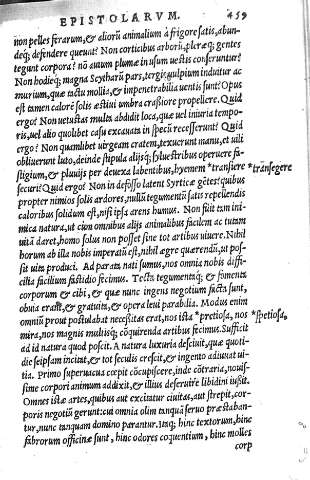 EPISTOLARVM. 459
non pelles ferarum, & aliorū animalium à frigore satis, abun-
deq; defendere queunt? Non corticibus arborū, pleræq; gentes
tegunt corpora? nō autum plumæ in usum uestis conseruntur?
Non hodieq; magna Scytharū pars, tergis uulpium induitur ac
murium, quæ tactu mollia, & impenetrabilia uentis sunt? Opus
est tamen calorē solis æstiui umbra crassiore propellere. Quid
ergo? Non uetustas multa abdidit loca, quæ uel iniuria tempo-
ris, uel alio quolibet casu excauata in specū recesserunt? Quid
ergo? Non quamlibet uirgeam cratem, texuerunt manu, et uili
obliuerunt luto, deinde stipula alijsq; syluestribus operuere fa-
stigium, & pluuijs per deuexa labentibus, hyemem *transiere *transegere
securi? Quid ergo? Non in defosso latent Syrticæ gētes? quibus
propter nimios solis ardores, nullū tegumentū satis repellendis
caloribus solidum est, nisi ipsa arens humus. Non fuit tam ini-
mica natura, ut cum omnibus alijs animalibus facilem ac tutam
uitā daret, homo solus non posset sine tot artibus uiuere. Nihil
horum ab illa nobis imperatū est, nihil ægre quærendū, ut pos-
sit uita produci. Ad parata nati sumus, nos omnia nobis diffi-
cilia facilium fastidio fecimus. Tecta tegumentaq; & fomenta
corporum & cibi, & quæ nunc ingens negotium facta sunt,
obuia erāt, & gratuita, & opera leui parabilia. Modus enim
omniū prout postulabat necessitas erat, nos ista *pretiosa, nos *speciosa,
mira, nos magnis multisq; cōquirenda artibus fecimus. Sufficit
ad id natura quod poscit. A natura luxuria desciuit, quæ quoti-
die seipsam incitat, & tot seculis crescit, & ingenio adiuuat ui-
tia. Primo superuacua cœpit cōcupiscere, inde cōtraria, nouis-
sime corpori animum addixit, & illius deseruire libidini iussit.
Omnes istæ artes, quibus aut excitatur ciuitas, aut strepit, cor-
poris negotiū gerunt: cui omnia olim tanquā seruo præstaban-
tur, nunc tanquam domino parantur. Itaq; hinc textorum, hinc
fabrorum officinæ sunt, hinc odores coquentium, hinc molles
corp